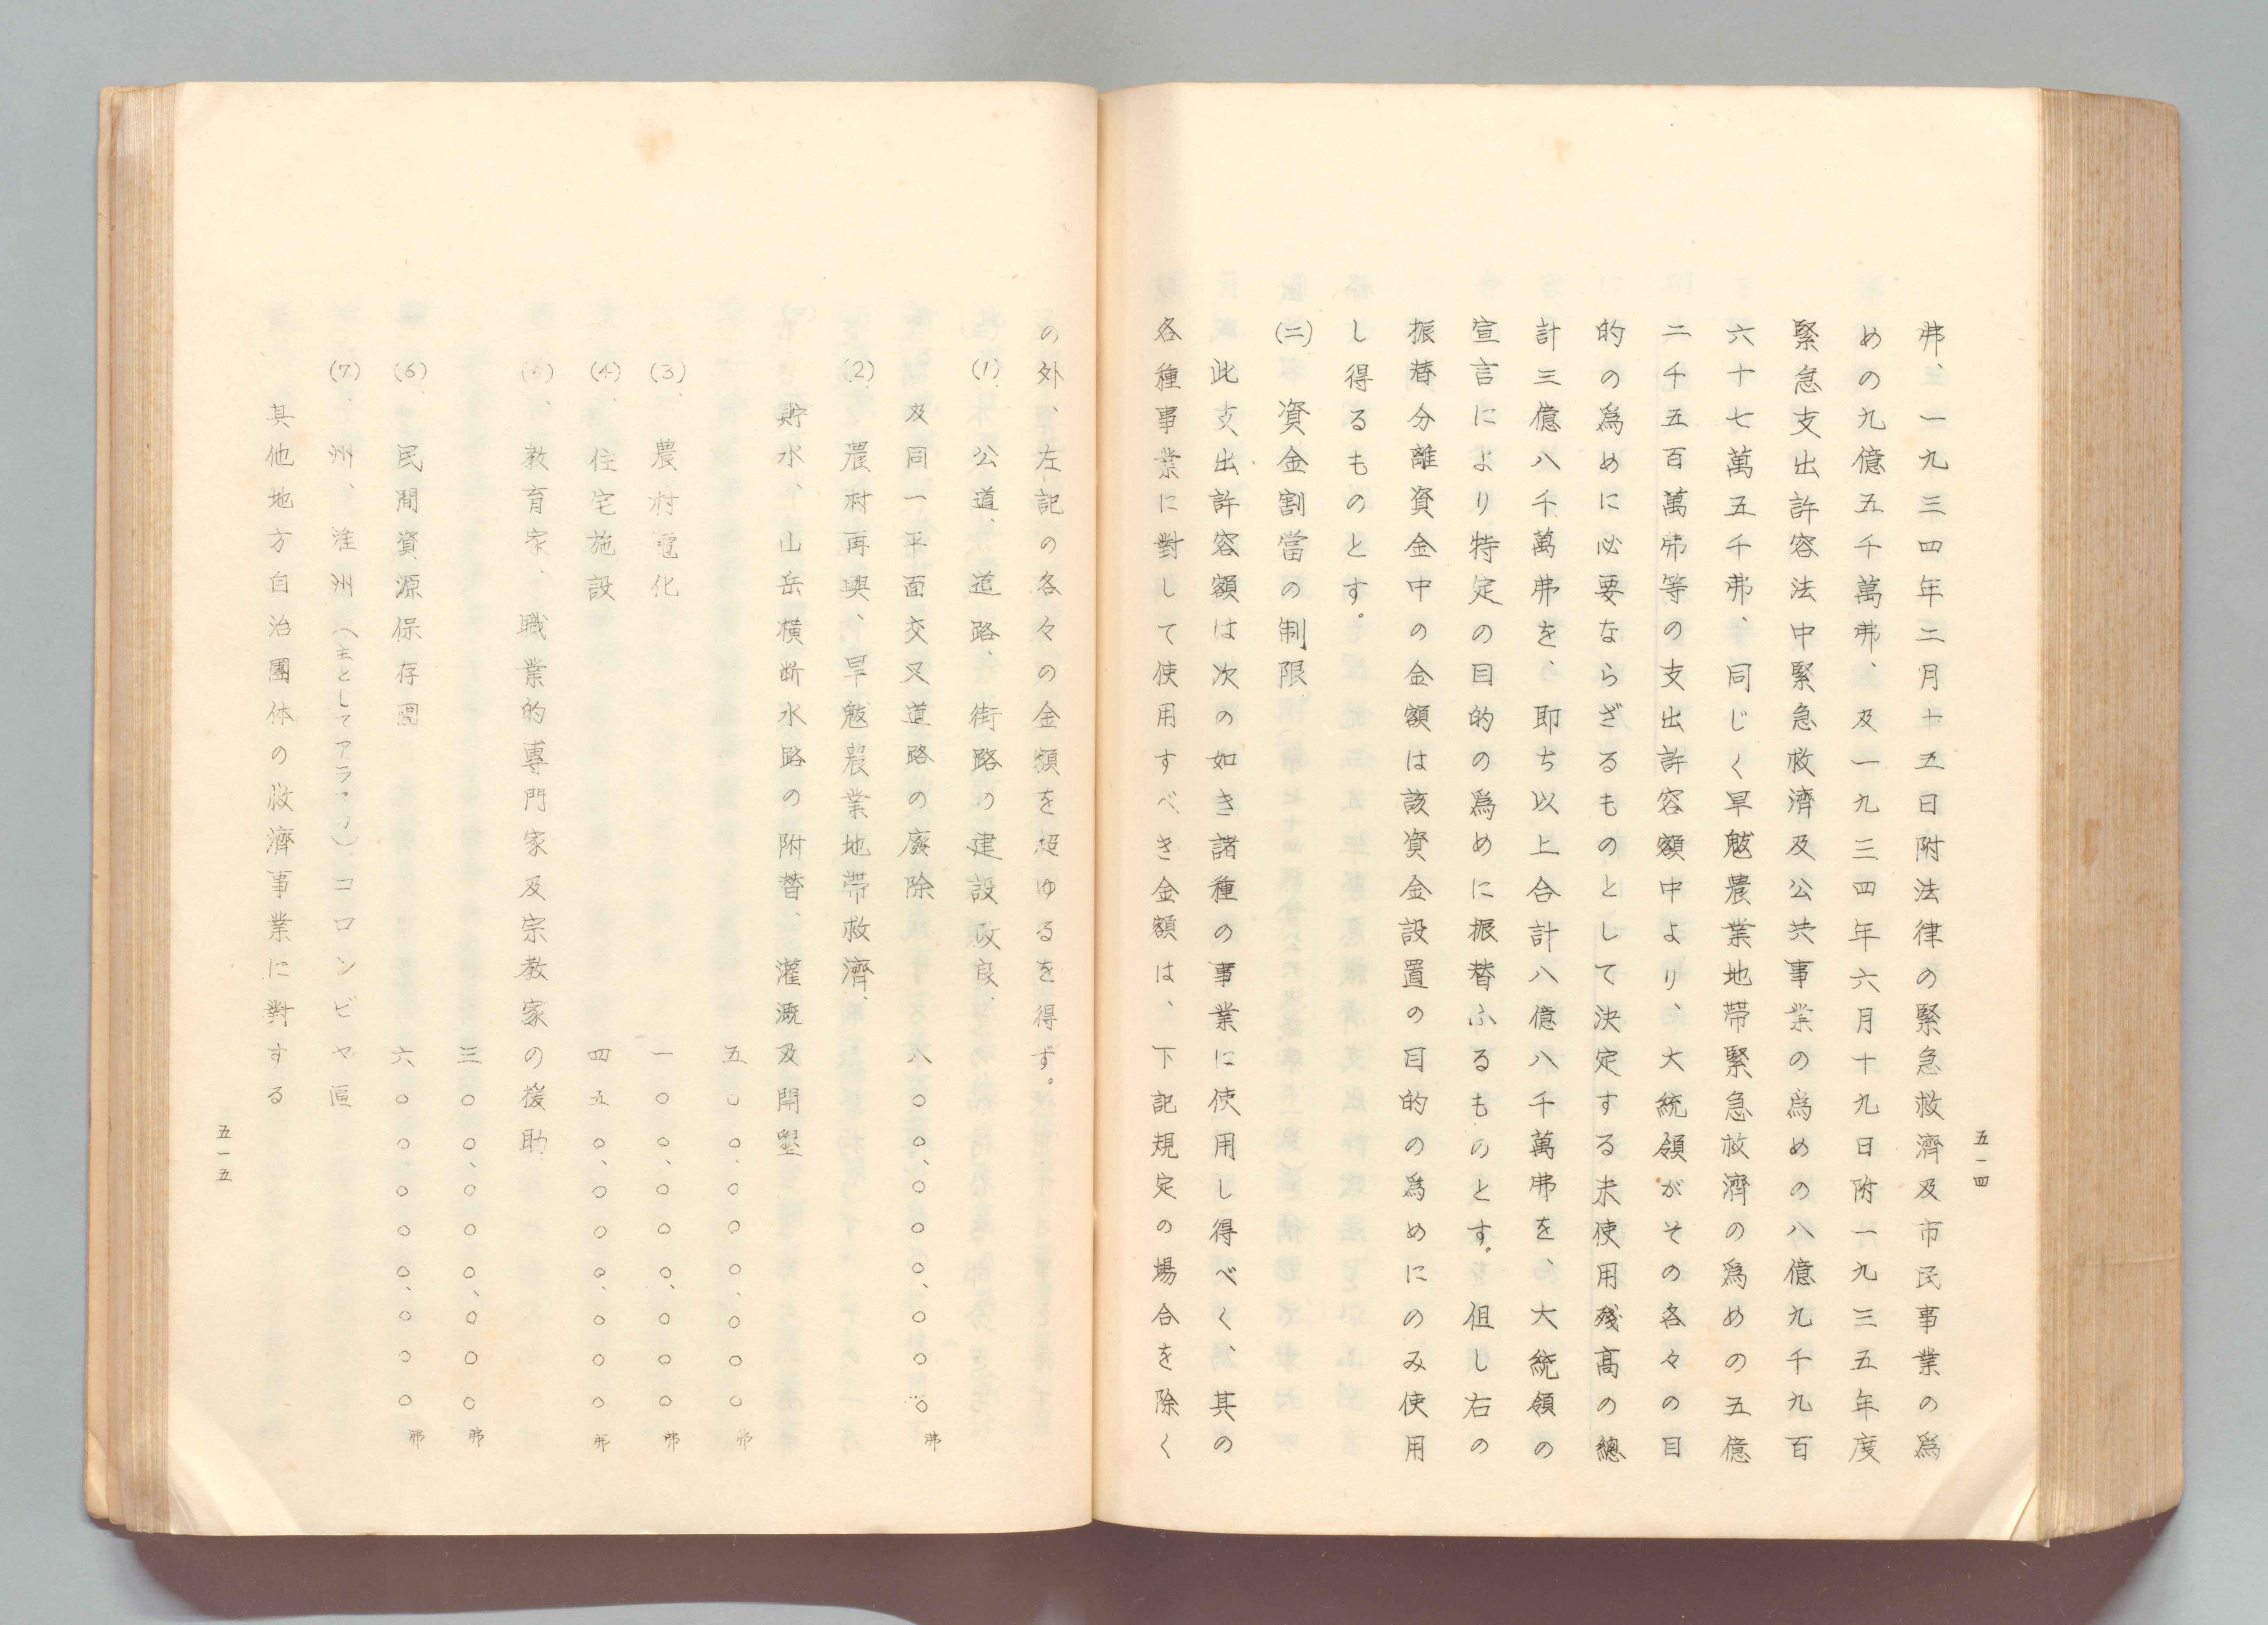 五一四
弗、一九三四年二月十五日附法律の緊急救濟及市民事業の爲
めの九億五千萬弗、及一九三四年六月十九日附一九三五年度
緊急支出許容法中緊急救濟及公共事業の爲めの八億九千九百
六十七萬五千弗、同じく旱魃農業地帶緊急救濟の爲めの五億
二千五百萬弗等の支出許容額中より、大統領がその各々の目
的の爲めに必要ならざるものとして決定する未使用殘高の總
計三億八千萬弗を、即ち以上合計八億八千萬弗を、大統領の
宣言により特定の目的の爲めに振替ふるものとす。但し右の
振替分離資金中の金額は該資金設置の目的の爲めにのみ使用
し得るものとす。
(二)資金割當の制限
此支出許容額は次の如き諸種の事業に使用し得べく、其の
各種事業に對して使用すべき金額は、下記規定の場合を除く
の外、左記の各々の金額を超ゆるを得ず。
(1)、公道、道路、街路の建設改良、
及同一平面交叉道路の廢除 八〇〇、〇〇〇、〇〇〇弗
(2)、農村再興、旱魃農業地帶救濟、
貯水、山岳橫斷水路の附替、灌漑及開墾
五〇〇、〇〇〇、〇〇〇弗
(3)、農村電化 一〇〇、〇〇〇、〇〇〇弗
(4)、住宅施設 四五〇、〇〇〇、〇〇〇弗
(5)、教育家、職業的專門家及宗教家の援助
三〇〇、〇〇〇、〇〇〇弗
(6)、民間資源保存團 六〇〇、〇〇〇、〇〇〇弗
(7)、州、准州(主としてアラスカ)コロンビヤ區
其他地方自治團体の救濟事業に對する
五一五